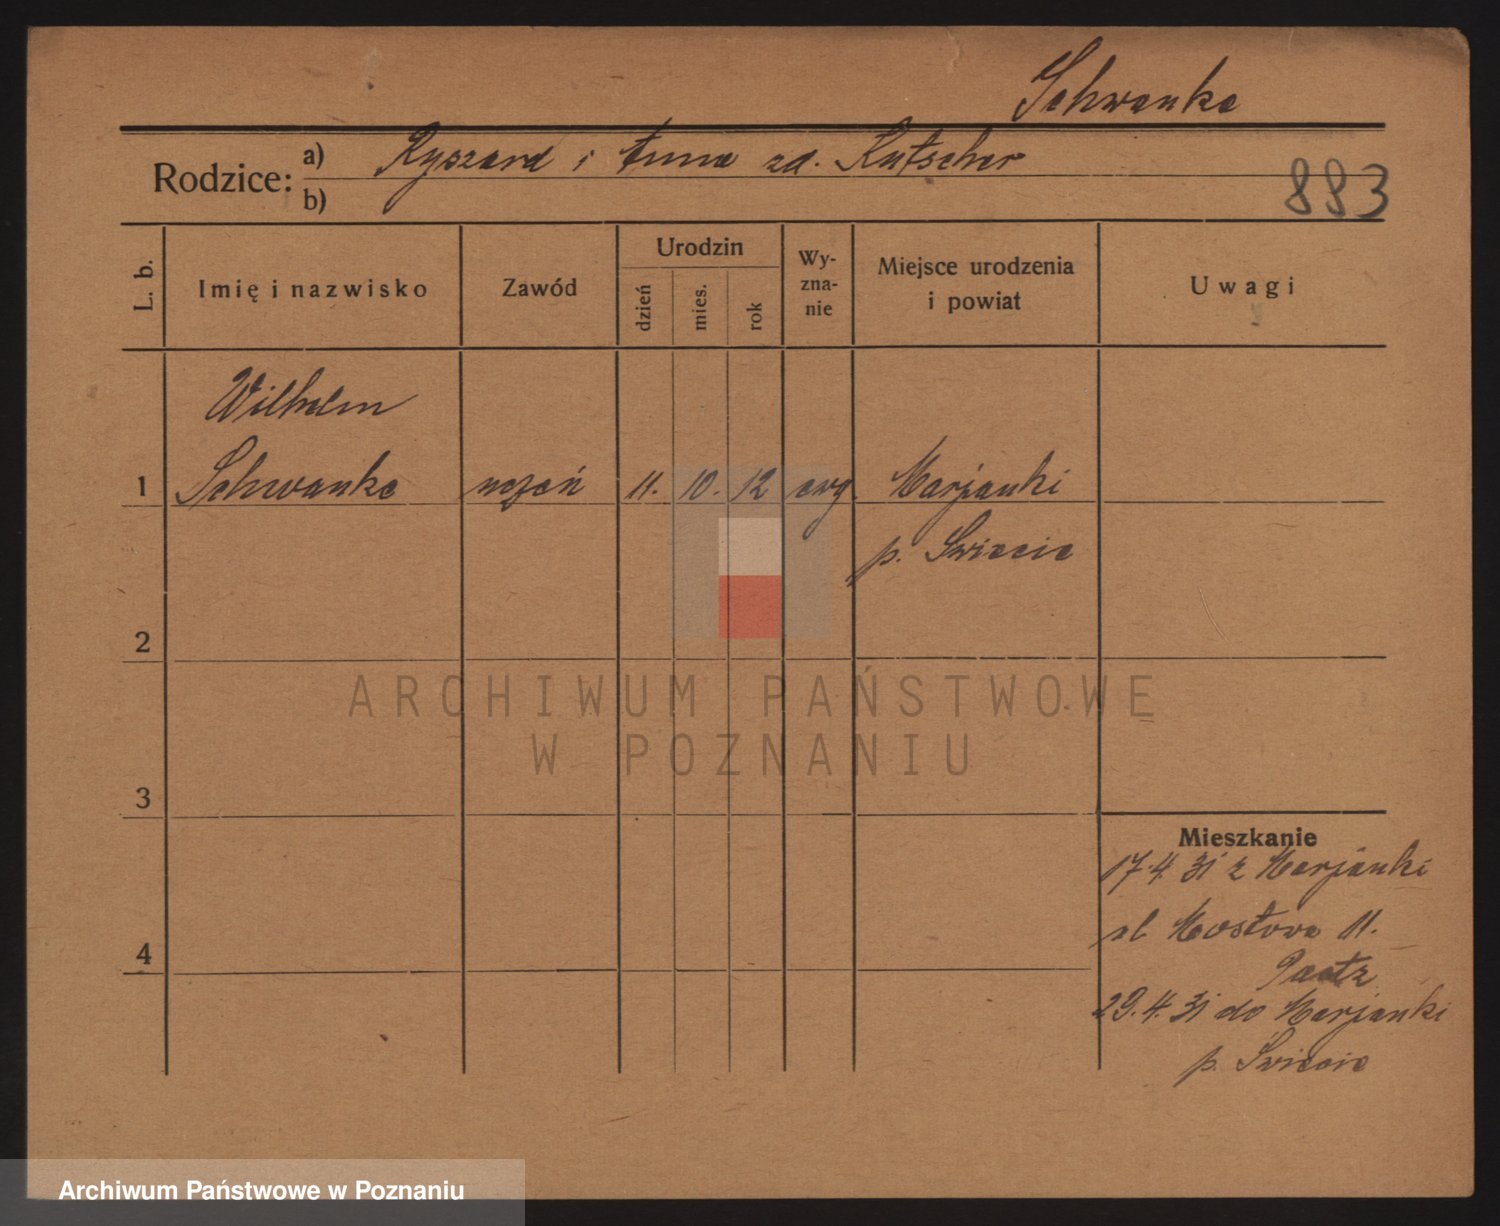 Schwanke
Rodzice: a) Ryszard i Anna zd. Kutscher
b)
883
L. b.
Imię i nazwisko
Zawód
Urodzin
dzień
mies.
rok
Wy-
zna-
nie
Miejsce urodzenia
i powiat
Uwagi
Wilhelm
1 Schwanke uczeń 11. 10. 12 ewg. Marjanki
p. Świecie
2
ARCHIWUM PAŃSTWOWE
W POZNANIU
3
Mieszkanie
17.4.31 z Marjanki
ul. Mostowa 11.
Paatz
4
29.4.31 do Marjanki
p. Świecie
Archiwum Państwowe w Poznaniu